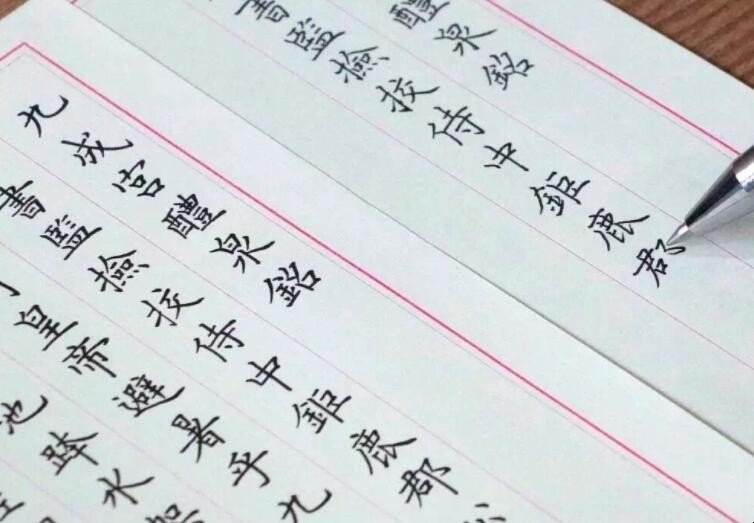 醴泉銘
書監撿挍侍中鉅鹿郡
九成宫醴泉銘
書監撿挍侍中鉅鹿郡
皇帝避暑乎九
池跨水